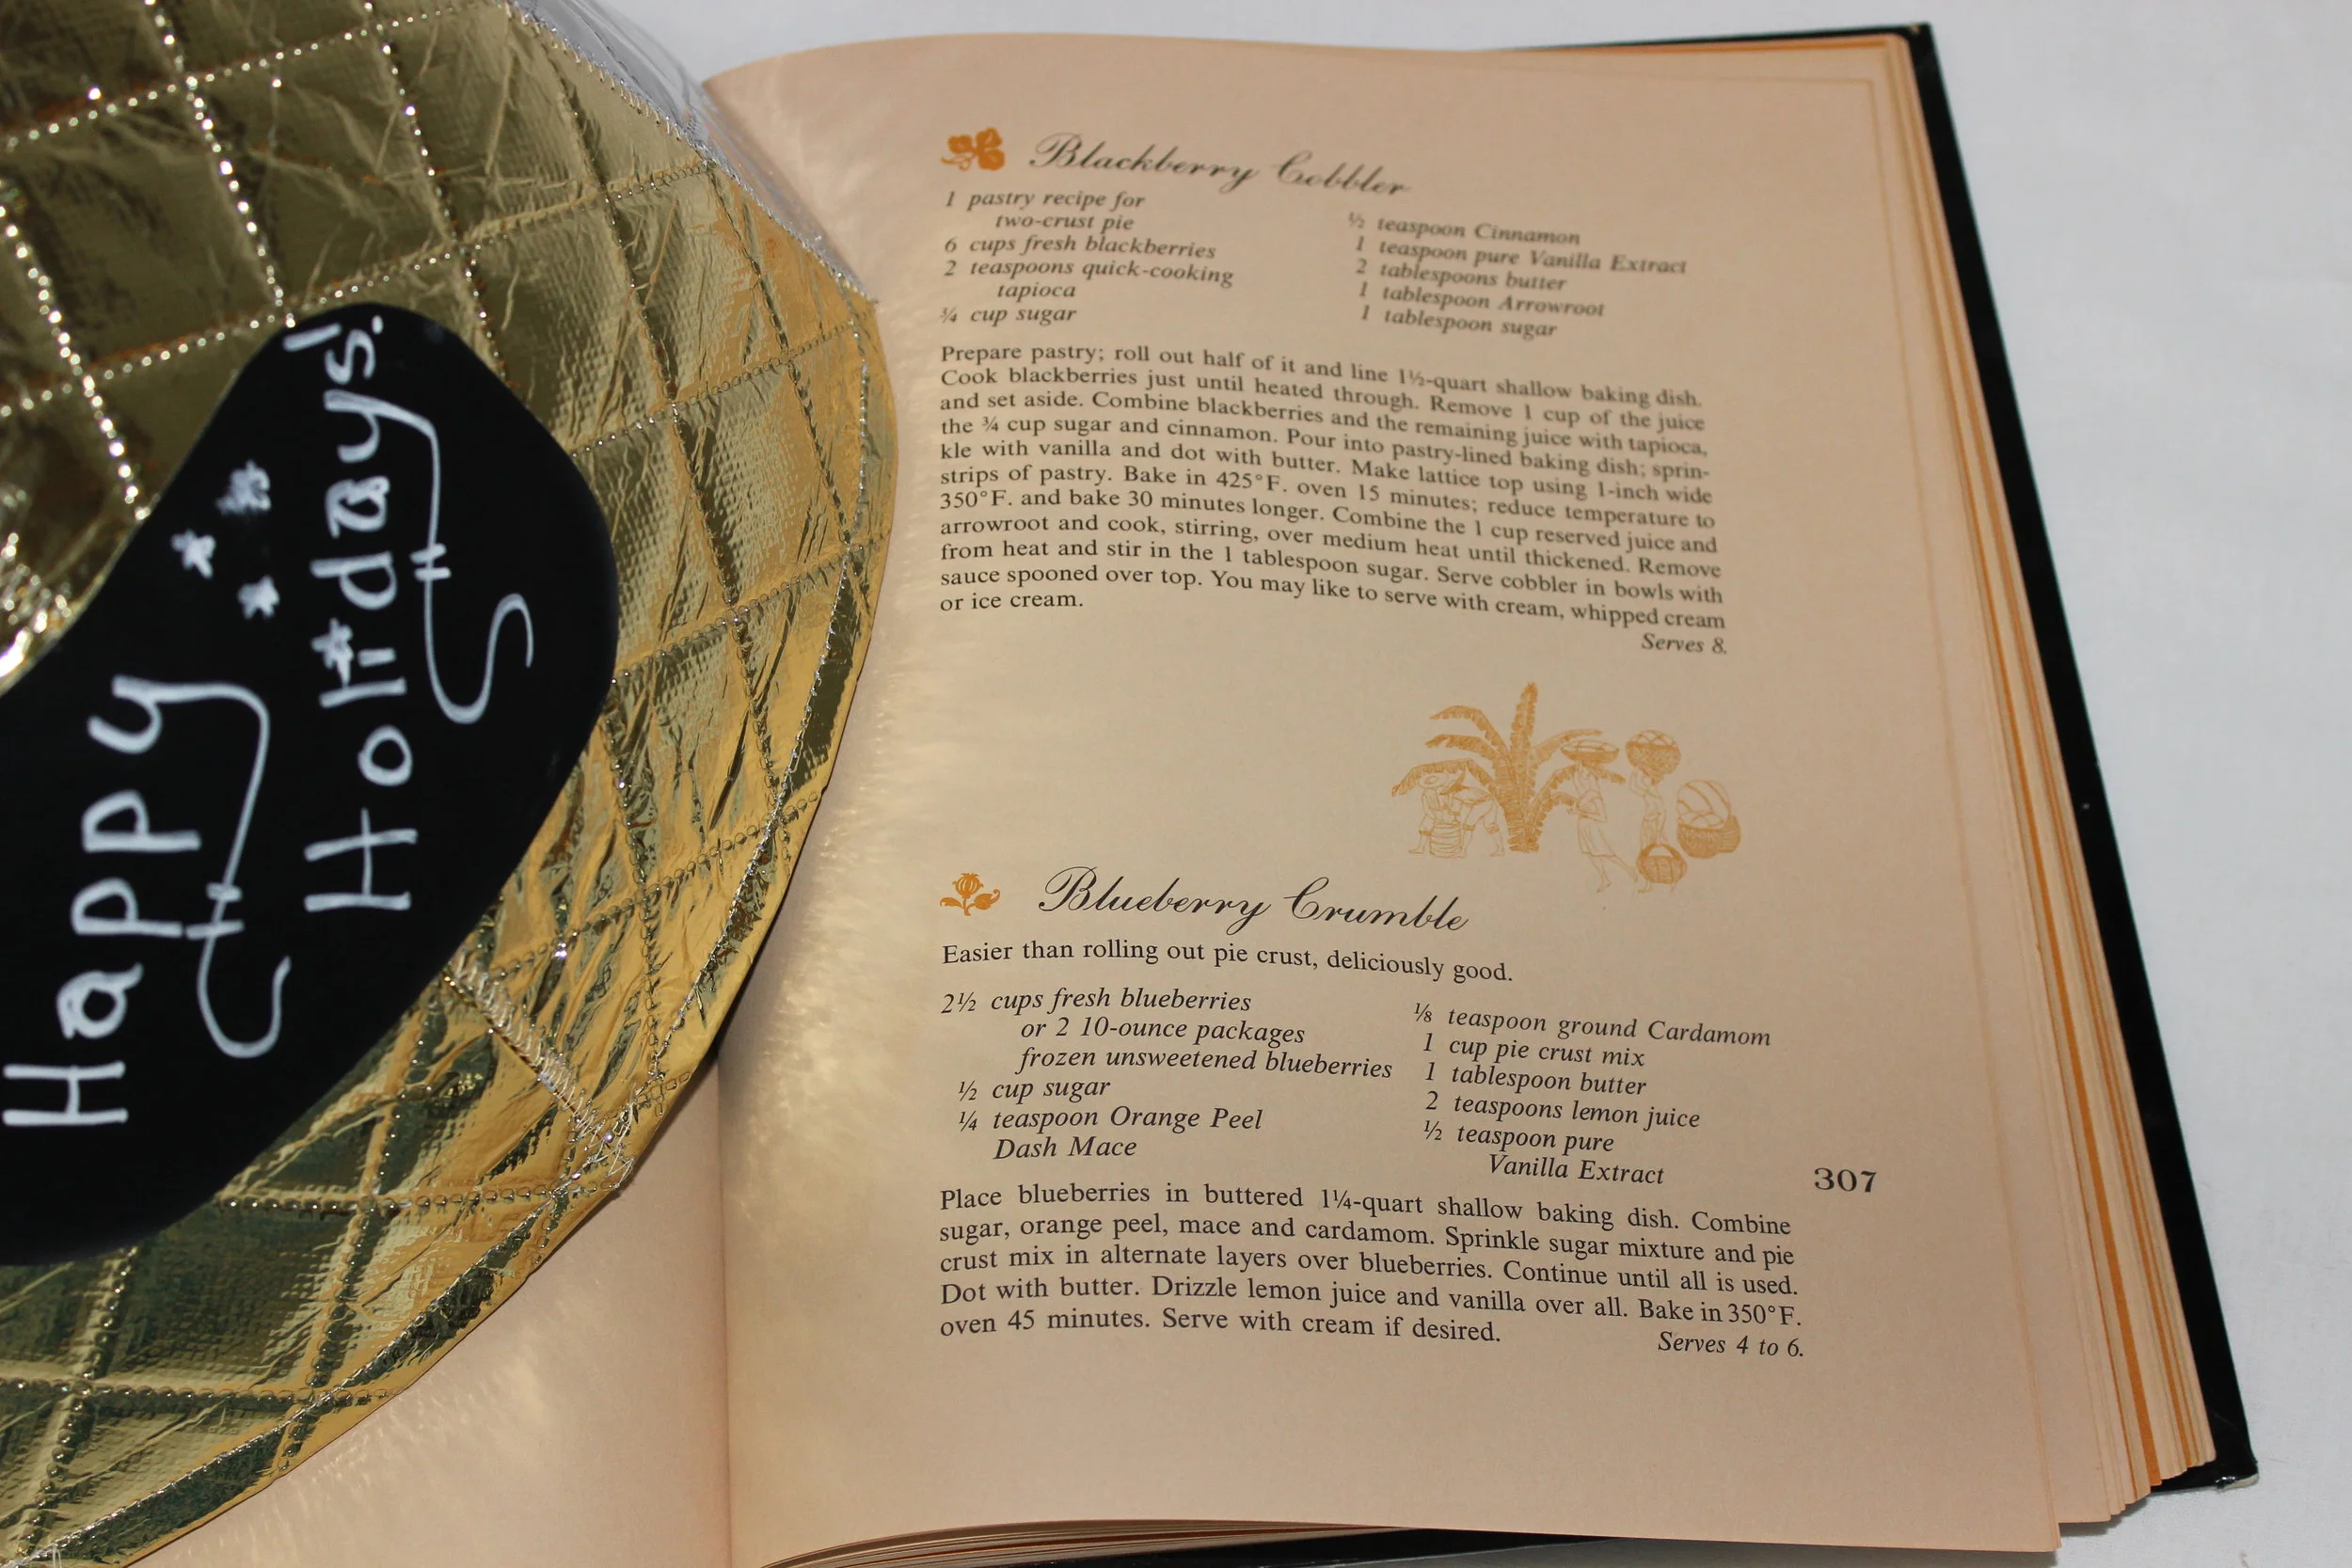 Happy
Holidays!
Blackberry Cobbler
1 pastry recipe for
two-crust pie
6 cups fresh blackberries
2 teaspoons quick-cooking
tapioca
¾ cup sugar
½ teaspoon Cinnamon
1 teaspoon pure Vanilla Extract
2 tablespoons butter
1 tablespoon Arrowroot
1 tablespoon sugar
Prepare pastry; roll out half of it and line 1½-quart shallow baking dish.
Cook blackberries just until heated through. Remove 1 cup of the juice
and set aside. Combine blackberries and the remaining juice with tapioca,
the ¾ cup sugar and cinnamon. Pour into pastry-lined baking dish; sprin-
kle with vanilla and dot with butter. Make lattice top using 1-inch wide
strips of pastry. Bake in 425°F. oven 15 minutes; reduce temperature to
350°F. and bake 30 minutes longer. Combine the 1 cup reserved juice and
arrowroot and cook, stirring, over medium heat until thickened. Remove
from heat and stir in the 1 tablespoon sugar. Serve cobbler in bowls with
sauce spooned over top. You may like to serve with cream, whipped cream
or ice cream.
Serves 8.
Blueberry Crumble
Easier than rolling out pie crust, deliciously good.
2½ cups fresh blueberries
or 2 10-ounce packages
frozen unsweetened blueberries
½ cup sugar
¼ teaspoon Orange Peel
Dash Mace
⅛ teaspoon ground Cardamom
1 cup pie crust mix
1 tablespoon butter
2 teaspoons lemon juice
½ teaspoon pure
Vanilla Extract
307
Place blueberries in buttered 1¼-quart shallow baking dish. Combine
sugar, orange peel, mace and cardamom. Sprinkle sugar mixture and pie
crust mix in alternate layers over blueberries. Continue until all is used.
Dot with butter. Drizzle lemon juice and vanilla over all. Bake in 350°F.
oven 45 minutes. Serve with cream if desired.
Serves 4 to 6.